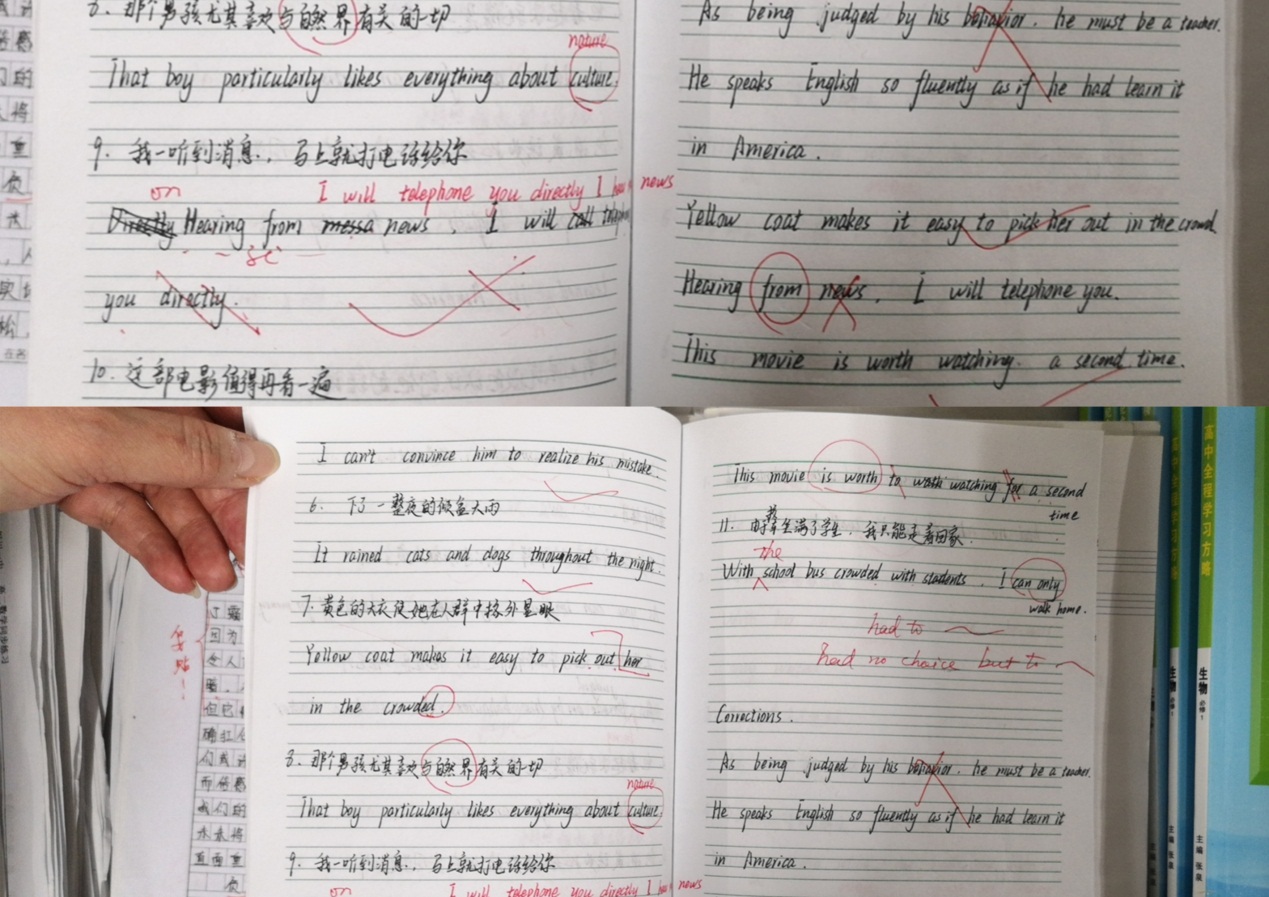 8. 那个男孩尤其喜欢与自然界有关的一切
nature
That boy particularly likes everything about culture.
9. 我一听到消息，马上就打电话给你
on I will telephone you directly I hear news
Directly Hearing from messa news, I will call telephone
you directly.
10. 这部电影值得再看一遍
As being judged by his behavior, he must be a teacher.
He speaks English so fluently as if he had learn it
in America.
Yellow coat makes it easy to pick her out in the crowd
Hearing from news, I will telephone you.
This movie is worth watching a second time.
I can't convince him to realize his mistake.
6. 下了一整夜的倾盆大雨
It rained cats and dogs throughout the night.
7. 黄色的大衣使她在人群中格外显眼
Yellow coat makes it easy to pick out her
in the crowded.
8. 那个男孩尤其喜欢与自然界有关的一切
nature
That boy particularly likes everything about culture.
9. 我一听到消息，马上就打电话给你
on I will telephone you directly I hear news
This movie is worth to wath watching for a second
time
11. 由于校车坐满了学生，我只能走着回家.
the
With school bus crowded with students, I can only
walk home.
had to
had no choice but to
Corrections.
As being judged by his behavior, he must be a teacher.
He speaks English so fluently as if he had learn it
in America.
高中全程学习方略
生物 必修1
主编 张泉
高中全程学习方略
生物 必修1
主编 张泉